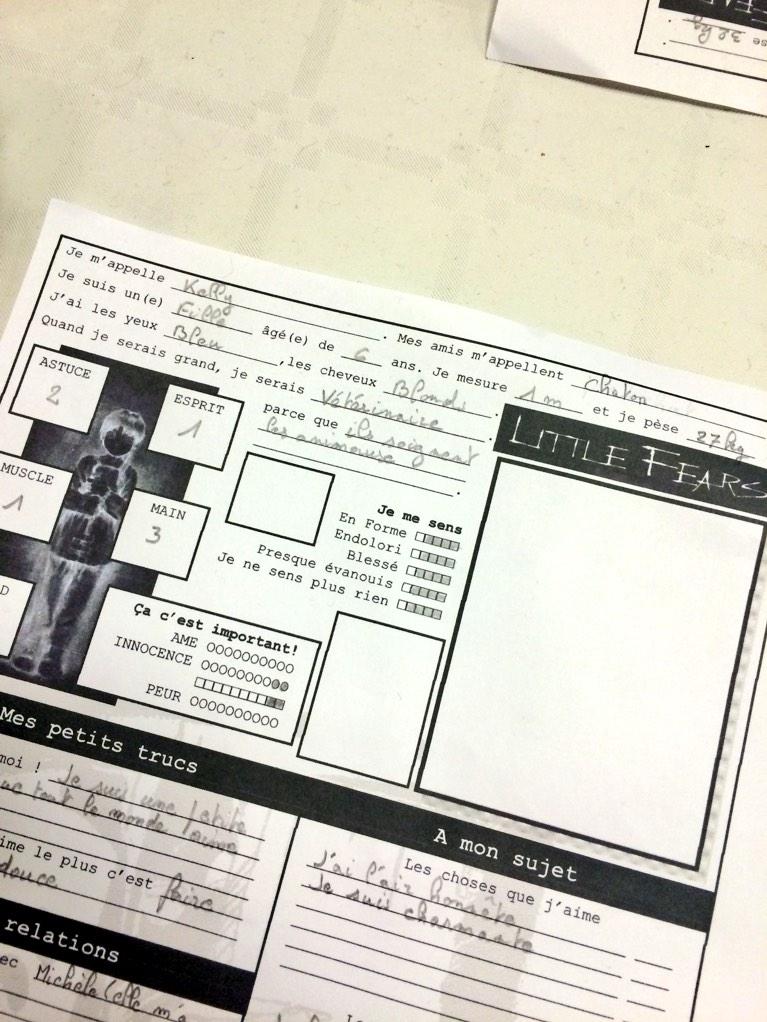 se 32 kg
Je m'appelle Kelly . Mes amis m'appellent Chaton
Je suis un(e) Fille âgé(e) de 6 ans. Je mesure 1m et je pèse 27kg
J'ai les yeux Bleu ,les cheveux Blonds .
Quand je serais grand, je serais Vétérinaire .
parce que ils soignent
les animeuse .
ASTUCE
2
ESPRIT
1
MUSCLE
1
MAIN
3
D
LITTLE FEARS
Je me sens
En Forme
Endolori
Blessé
Presque évanouis
Je ne sens plus rien
Ça c'est important!
AME OOOOOOOOOO
INNOCENCE OOOOOOOOOO
PEUR OOOOOOOOOO
Mes petits trucs
moi ! Je suis une petite
que tout le monde aime
ime le plus c'est faire
douce
relations
ec Michèle (elle m'a
A mon sujet
Les choses que j'aime
J'ai l'air honnête
Je suis charmante